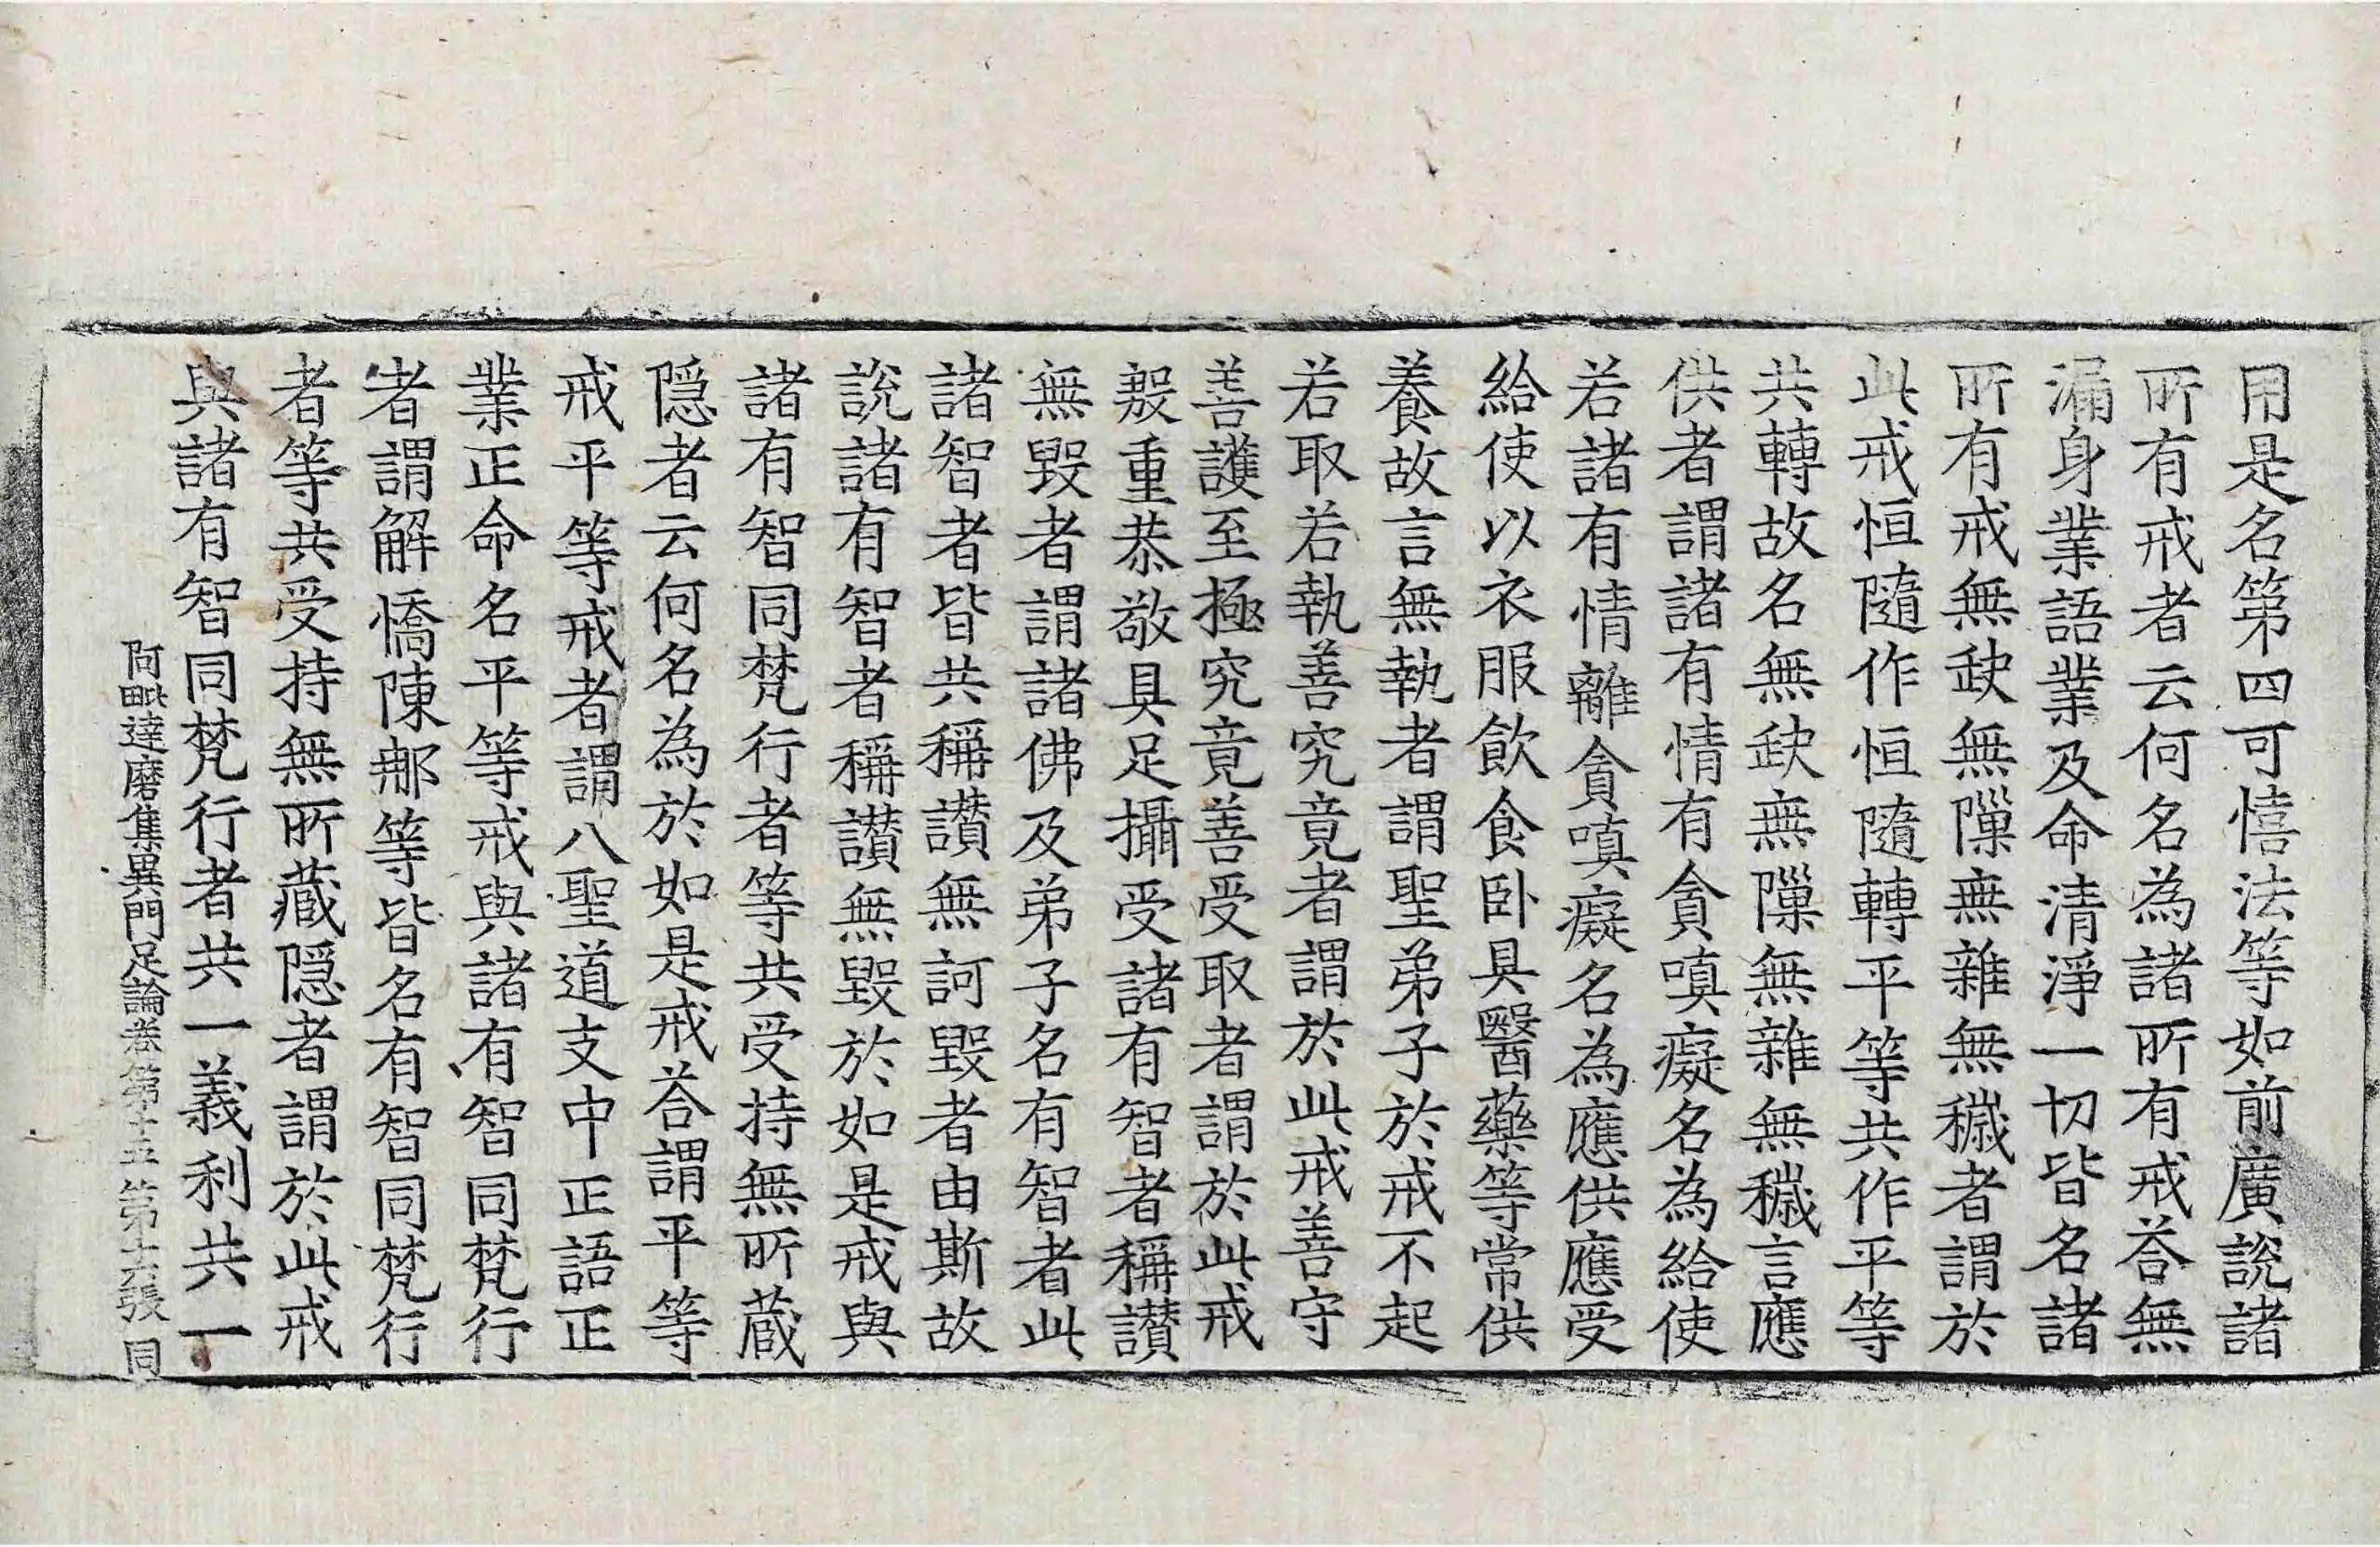 用是名第四可憘法等如前廣說諸
所有戒者云何名為諸所有戒荅無
漏身業語業及命清淨一切皆名諸
所有戒無缺無隟無雜無穢者謂於
此戒恒隨作恒隨轉平等共作平等
共轉故名無缺無隟無雜無穢言應
供者謂諸有情有貪嗔癡名為給使
若諸有情離貪嗔癡名為應供應受
給使以衣服飲食卧具醫藥等常供
養故言無執者謂聖弟子於戒不起
若取若執善究竟者謂於此戒善守
善護至極究竟善受取者謂於此戒
殷重恭敬具足攝受諸有智者稱讃
無毀者謂諸佛及弟子名有智者此
諸智者皆共稱讃無訶毀者由斯故
說諸有智者稱讃無毀於如是戒與
諸有智同梵行者等共受持無所蔵
隠者云何名為於如是戒荅謂平等
戒平等戒者謂八聖道支中正語正
業正命名平等戒與諸有智同梵行
者謂解憍陳那等皆名有智同梵行
者等共受持無所藏隠者謂於此戒
與諸有智同梵行者共一義利共一
阿毗達磨集異門足論卷第十五 第十六張 同